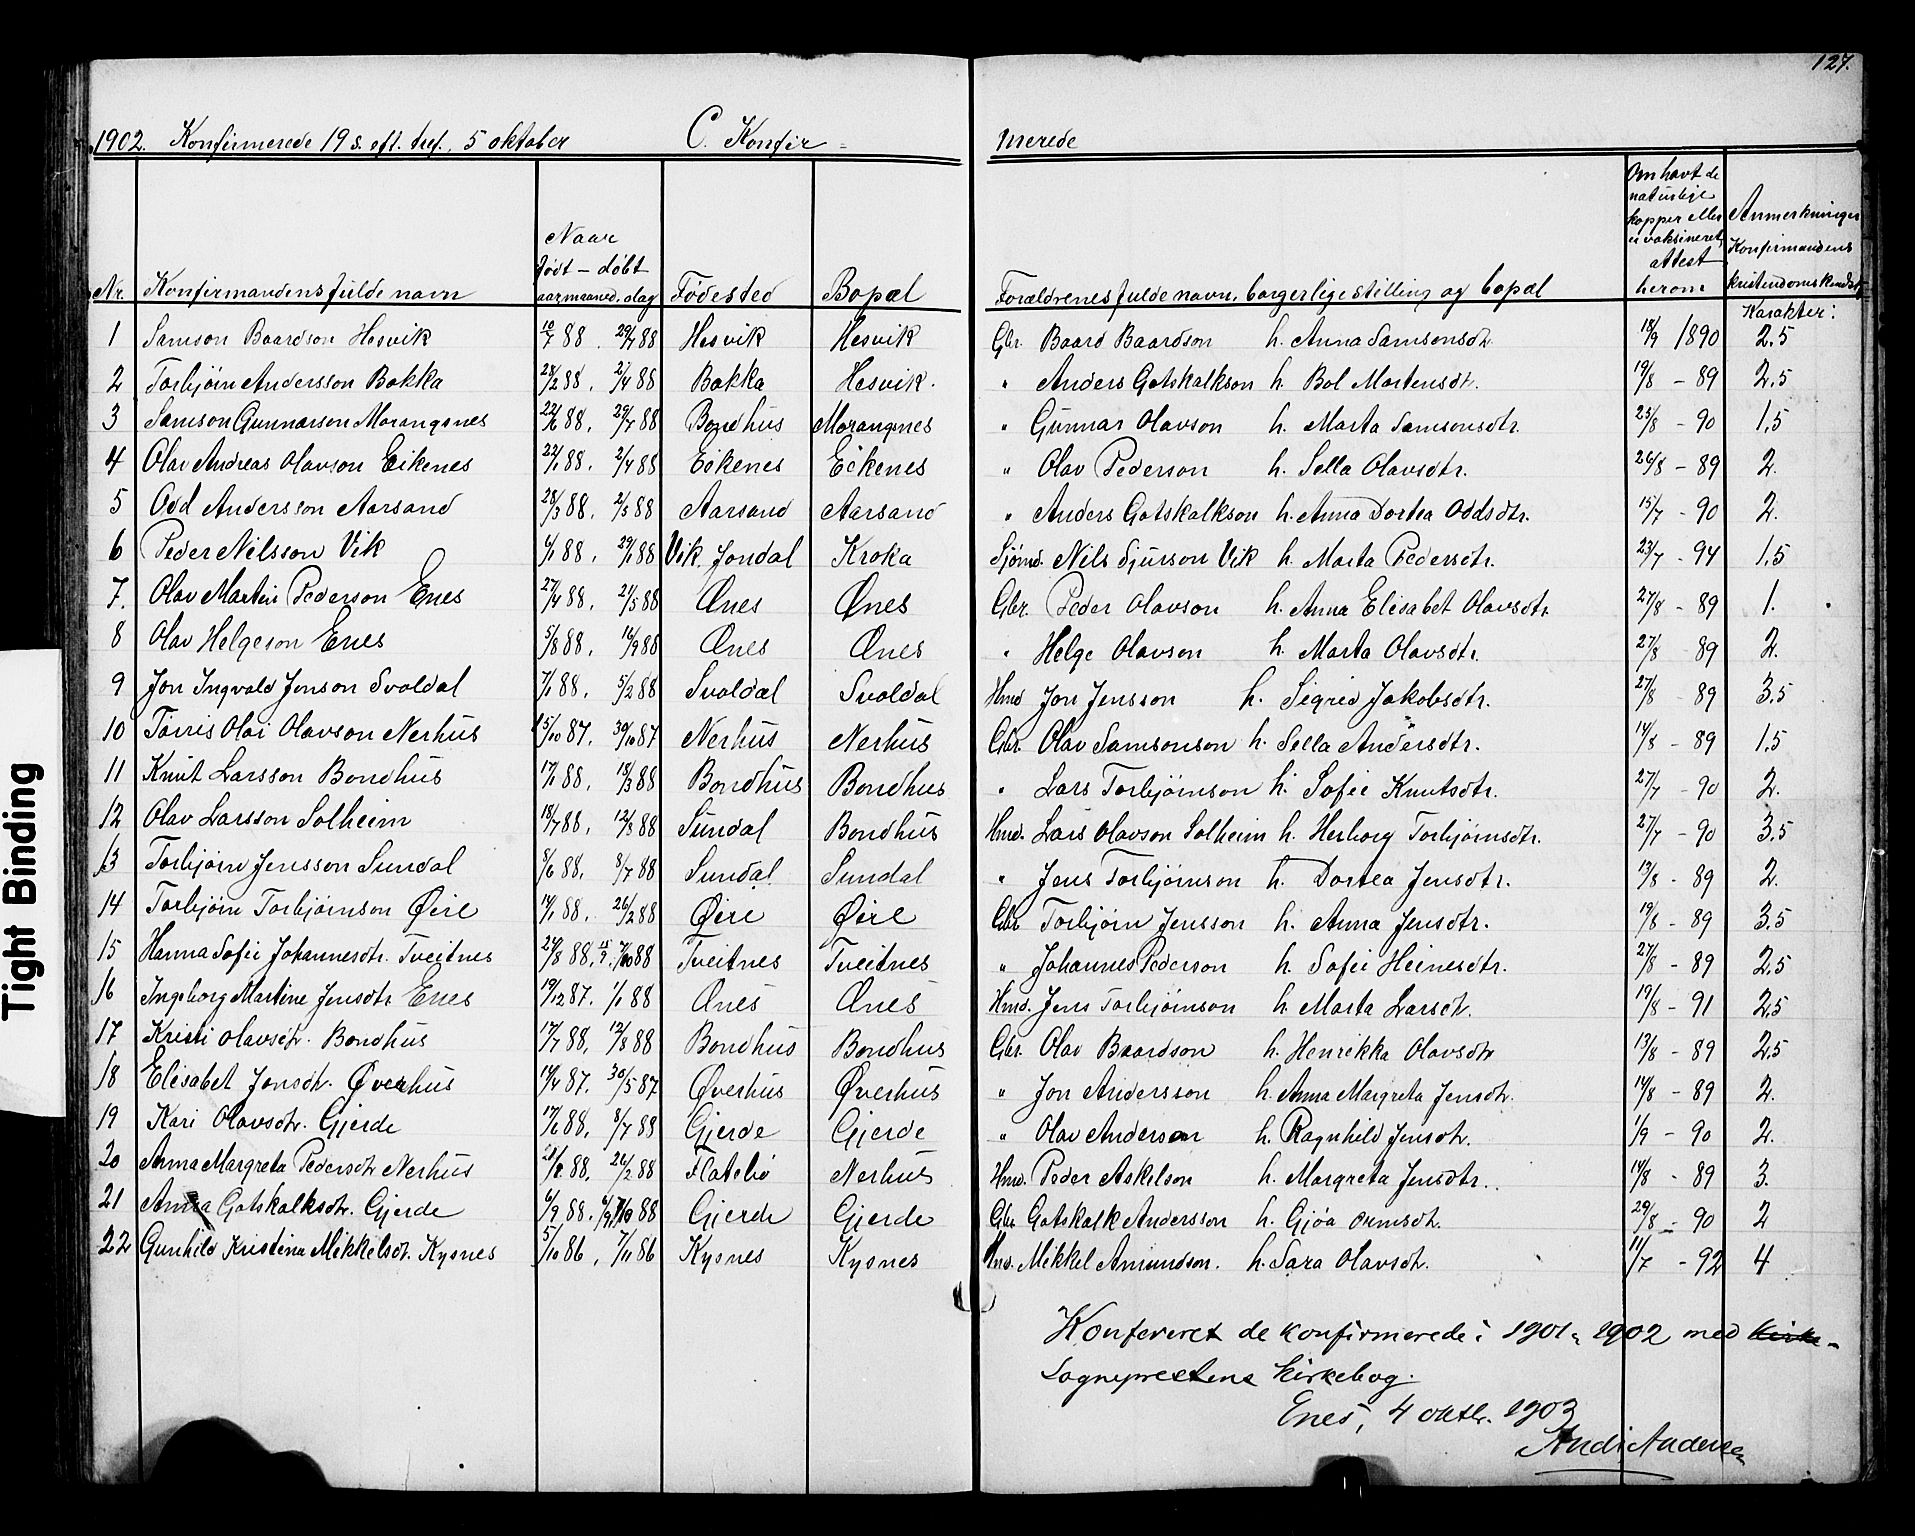 127.
1902. Konfirmerede 19 s. eft. tref., 5 oktober C. Konfir- merede
Nr. Konfirmandens fulde navn Naar født – døbt aar maaned. dag Fødested Bopæl Forældrenes fulde navn, borgerlige stilling og bopæl Om havt de naturlige kopper eller er vaksineret, attest herom Anmerkninger Konfirmandens kristendomskundsk.
Karakter:
1 Samson Baardson Hesvik 10/7 88. 29/7 88 Hesvik Hesvik Gbr. Baard Baardson h. Anna Samsonsdtr. 18/9 1890 2.5
2 Torbjörn Andersson Bakka 28/2 88. 2/4 88 Bakka Hesvik. " Anders Gotskalkson h. Bol Martensdt. 19/8 – 89 2.5
3 Samson Gunnarson Morangsnes 22/6 88. 29/7 88 Bondhus Morangsnes " Gunnar Olavson h. Marta Samsonsdtr. 25/8 – 90 1,5
4 Olav Andreas Olavson Eikenes 22/1 88. 2/4 88 Eikenes Eikenes " Olav Pederson h. Sella Olavsdtr. 26/8 – 89 2.
5 Odd Andersson Aarsand 28/3 88. 2/5 88 Aarsand Aarsand " Anders Gotskalkson h. Anna Dortea Oddsdtr. 15/7 – 90 2.
6 Peder Nilsson Vik 6/1 88. 29/1 88 Vik, Jondal Kroka Sjömd. Nils Sjurson Vik h. Marta Pedersdtr. 23/7 – 94 1,5
7. Olav Martin Pederson Enes 27/4 88. 21/5 88 Ænes Ænes Gbr. Peder Olavson h. Anna Elisabet Olavsdtr 27/8 – 89 1.
8 Olav Helgeson Enes 5/8 88. 16/9 88 Ænes Ænes " Helge Olavson h. Marta Olavsdtr. 27/8 89 2.
9 Jon Ingvald Jonson Svoldal 7/1 88. 5/2 88 Svoldal Svoldal Hmd Jon Jensson h. Sigrid Jakobsdtr. 27/8 – 89 3.5
10 Torris Olai Olavson Nerhus 15/10 87. 30/10 87 Nerhus Nerhus Gbr. Olav Samsonson h. Sella Andersdtr. 14/8 – 89 1.5
11 Knut Larsson Bondhus 17/1 88. 18/3 88 Bondhus Bondhus " Lars Torbjörnson h. Sofie Knutsdtr. 27/7 – 90 2.
12 Olav Larsson Solheim 18/7 88. 12/8 88 Sundal Bondhus Hmd. Lars Olavson Solheim h. Herborg Torbjörnsdtr. 27/7 – 90 3.5
13 Torbjörn Jensson Sundal 8/6 88. 8/7 88 Sundal Sundal " Jens Torbjörnson h. Dortea Jensdtr. 13/8 – 89 2.
14 Torbjörn Torbjörnson Øire 14/1 88. 26/2 88 Øire Øire Gbr Torbjörn Jensson h. Anna Jensdtr. 19/8 – 89 3.5
15 Hanna Sofie Johannesdtr. Tveitnes 24/8 88. 7/10 88 Tveitnes Tveitnes " Johannes Pederson h. Sofie Heinesdtr. 27/8 – 89 2.5
16 Ingeborg Martine Jensdtr Enes 19/12 87. 1/1 88 Ænes Ænes Hmd. Jens Torbjörnson h. Marta Larsdt. 19/8 – 91 2,5
17 Kristi Olavsdt. Bondhus 17/7 88. 12/8 88 Bondhus Bondhus Gbr. Olav Baardson h. Henrikka Olavsdtr 13/8 – 89 2,5
18 Elisabet Jonsdt. Øverhus 14/4 87. 30/5 87 Øverhus Øverhus " Jon Andersson h. Anna Margreta Jensdtr. 14/8 – 89 2.
19 Kari Olavsdtr. Gjerde 17/6 88. 8/7 88 Gjerde Gjerde " Olav Anderson h. Ragnhild Jensdtr. 1/9 – 90 2.
20 Anna Margreta Pedersdtr Nerhus 88. 26/2 88 Flatebö Nerhus Hmd. Peder Askelson h. Margreta Jensdtr. 14/8 – 89 3.
21 Anna Gotskalksdtr. Gjerde 6/9 88. 88 Gjerde Gjerde Gbr Gotskalk Andersson h. Gjöa Ormsdt. 29/8 – 90 2
22 Gunhild Kristina Mikkelsdt. Kysnes 5/10 86. 7/11 86 Kysnes Kysnes Hmd. Mikkel Amundson. h. Sara Olavsdtr. 11/7 – 92 4
Konfereret de konfirmerede i 1901 1902 med
Sogneprestens kirkebog.
Enes, 4 oktbr. 1903
And. Andersen
Tight Binding